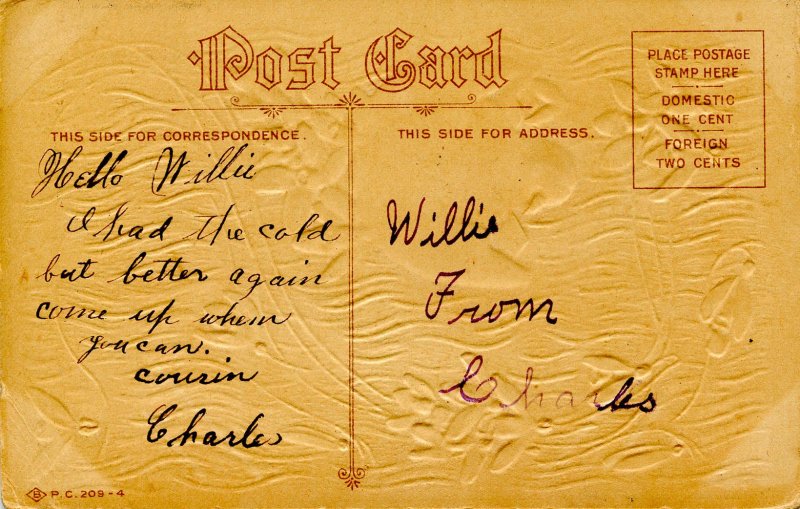 Post Card
PLACE POSTAGE
STAMP HERE
DOMESTIC
ONE CENT
FOREIGN
TWO CENTS
THIS SIDE FOR CORRESPONDENCE.
THIS SIDE FOR ADDRESS.
Hello Willie
I had the cold
but better again
come up when
you can.
cousin
Charles
Willie
From
Charles
B P.C. 209-4